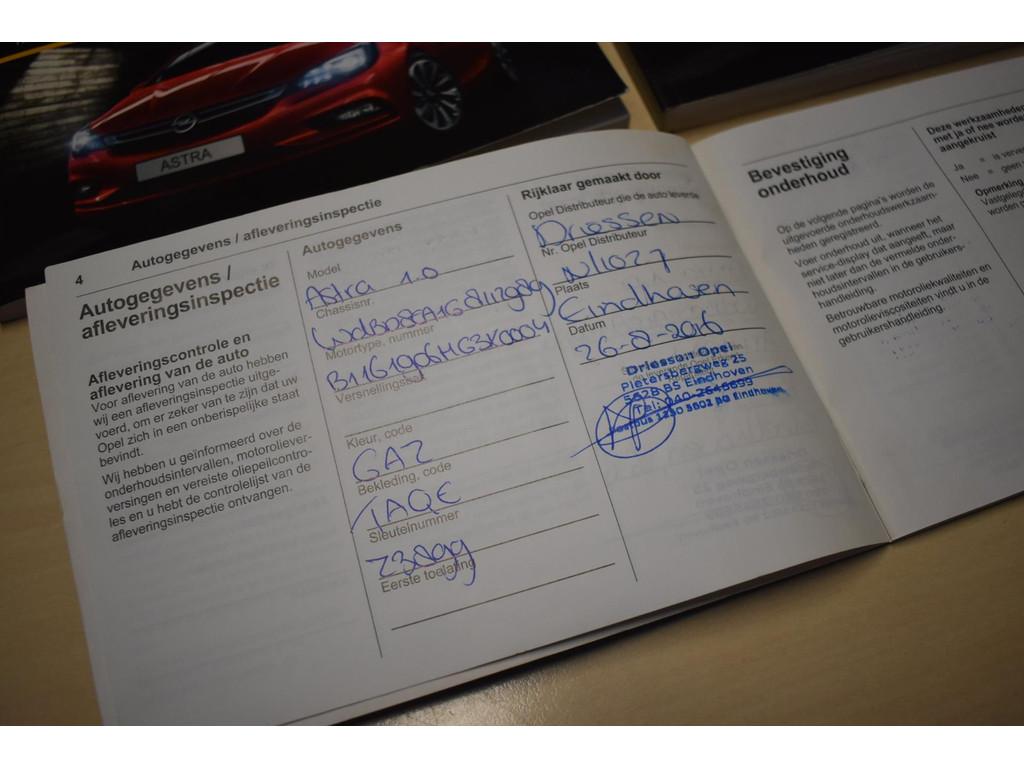 ASTRA
4
Autogegevens / afleveringsinspectie
Autogegevens /
afleveringsinspectie
Afleveringscontrole en
aflevering van de auto
Voor aflevering van de auto hebben
wij een afleveringsinspectie uitge-
voerd, om er zeker van te zijn dat uw
Opel zich in een onberispelijke staat
bevindt.
Wij hebben u geïnformeerd over de
onderhoudsintervallen, motoroliever-
versingen en vereiste oliepeilcontro-
les en u hebt de controlelijst van de
afleveringsinspectie ontvangen.
Autogegevens
Model
Astra 1.0
Chassisnr.
Motortype, nummer
Kleur, code
GAZ
Bekleding, code
TAQE
Sleutelnummer
Eerste toelating
Rijklaar gemaakt door
Opel Distributeur die de auto leverde
Driessen
Nr. Opel Distributeur
Nl1027
Plaats
Eindhoven
Datum
26-8-2016
Driessen Opel
Pietersbergweg 25
5628 BS Eindhoven
Tel: 040-2645699
Postbus 1230 5602 BG Eindhoven
Bevestiging
onderhoud
Op de volgende pagina's worden de
uitgevoerde onderhoudswerkzaam-
heden geregistreerd.
Voer onderhoud uit, wanneer het
service-display dat aangeeft, maar
niet later dan de vermelde onder-
houdsintervallen in de gebruikers-
handleiding.
Betrouwbare motoroliekwaliteiten en
motorolieviscositeiten vindt u in de
gebruikershandleiding.
Deze werkzaamheden
met ja of nee worde
aangekruist
Ja = is verve
Nee = geen
Opmerking
Vastgeleg
worden